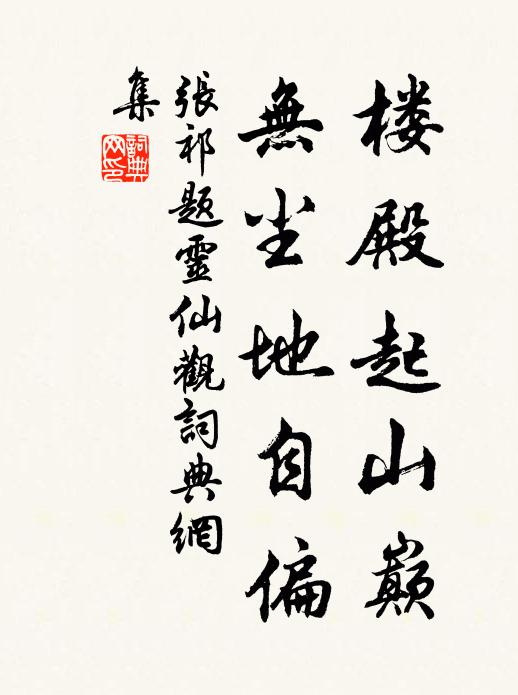 楼殿起山巅
無尘地自偏
張祁題靈仙觀詞典網
集
詞典
网印